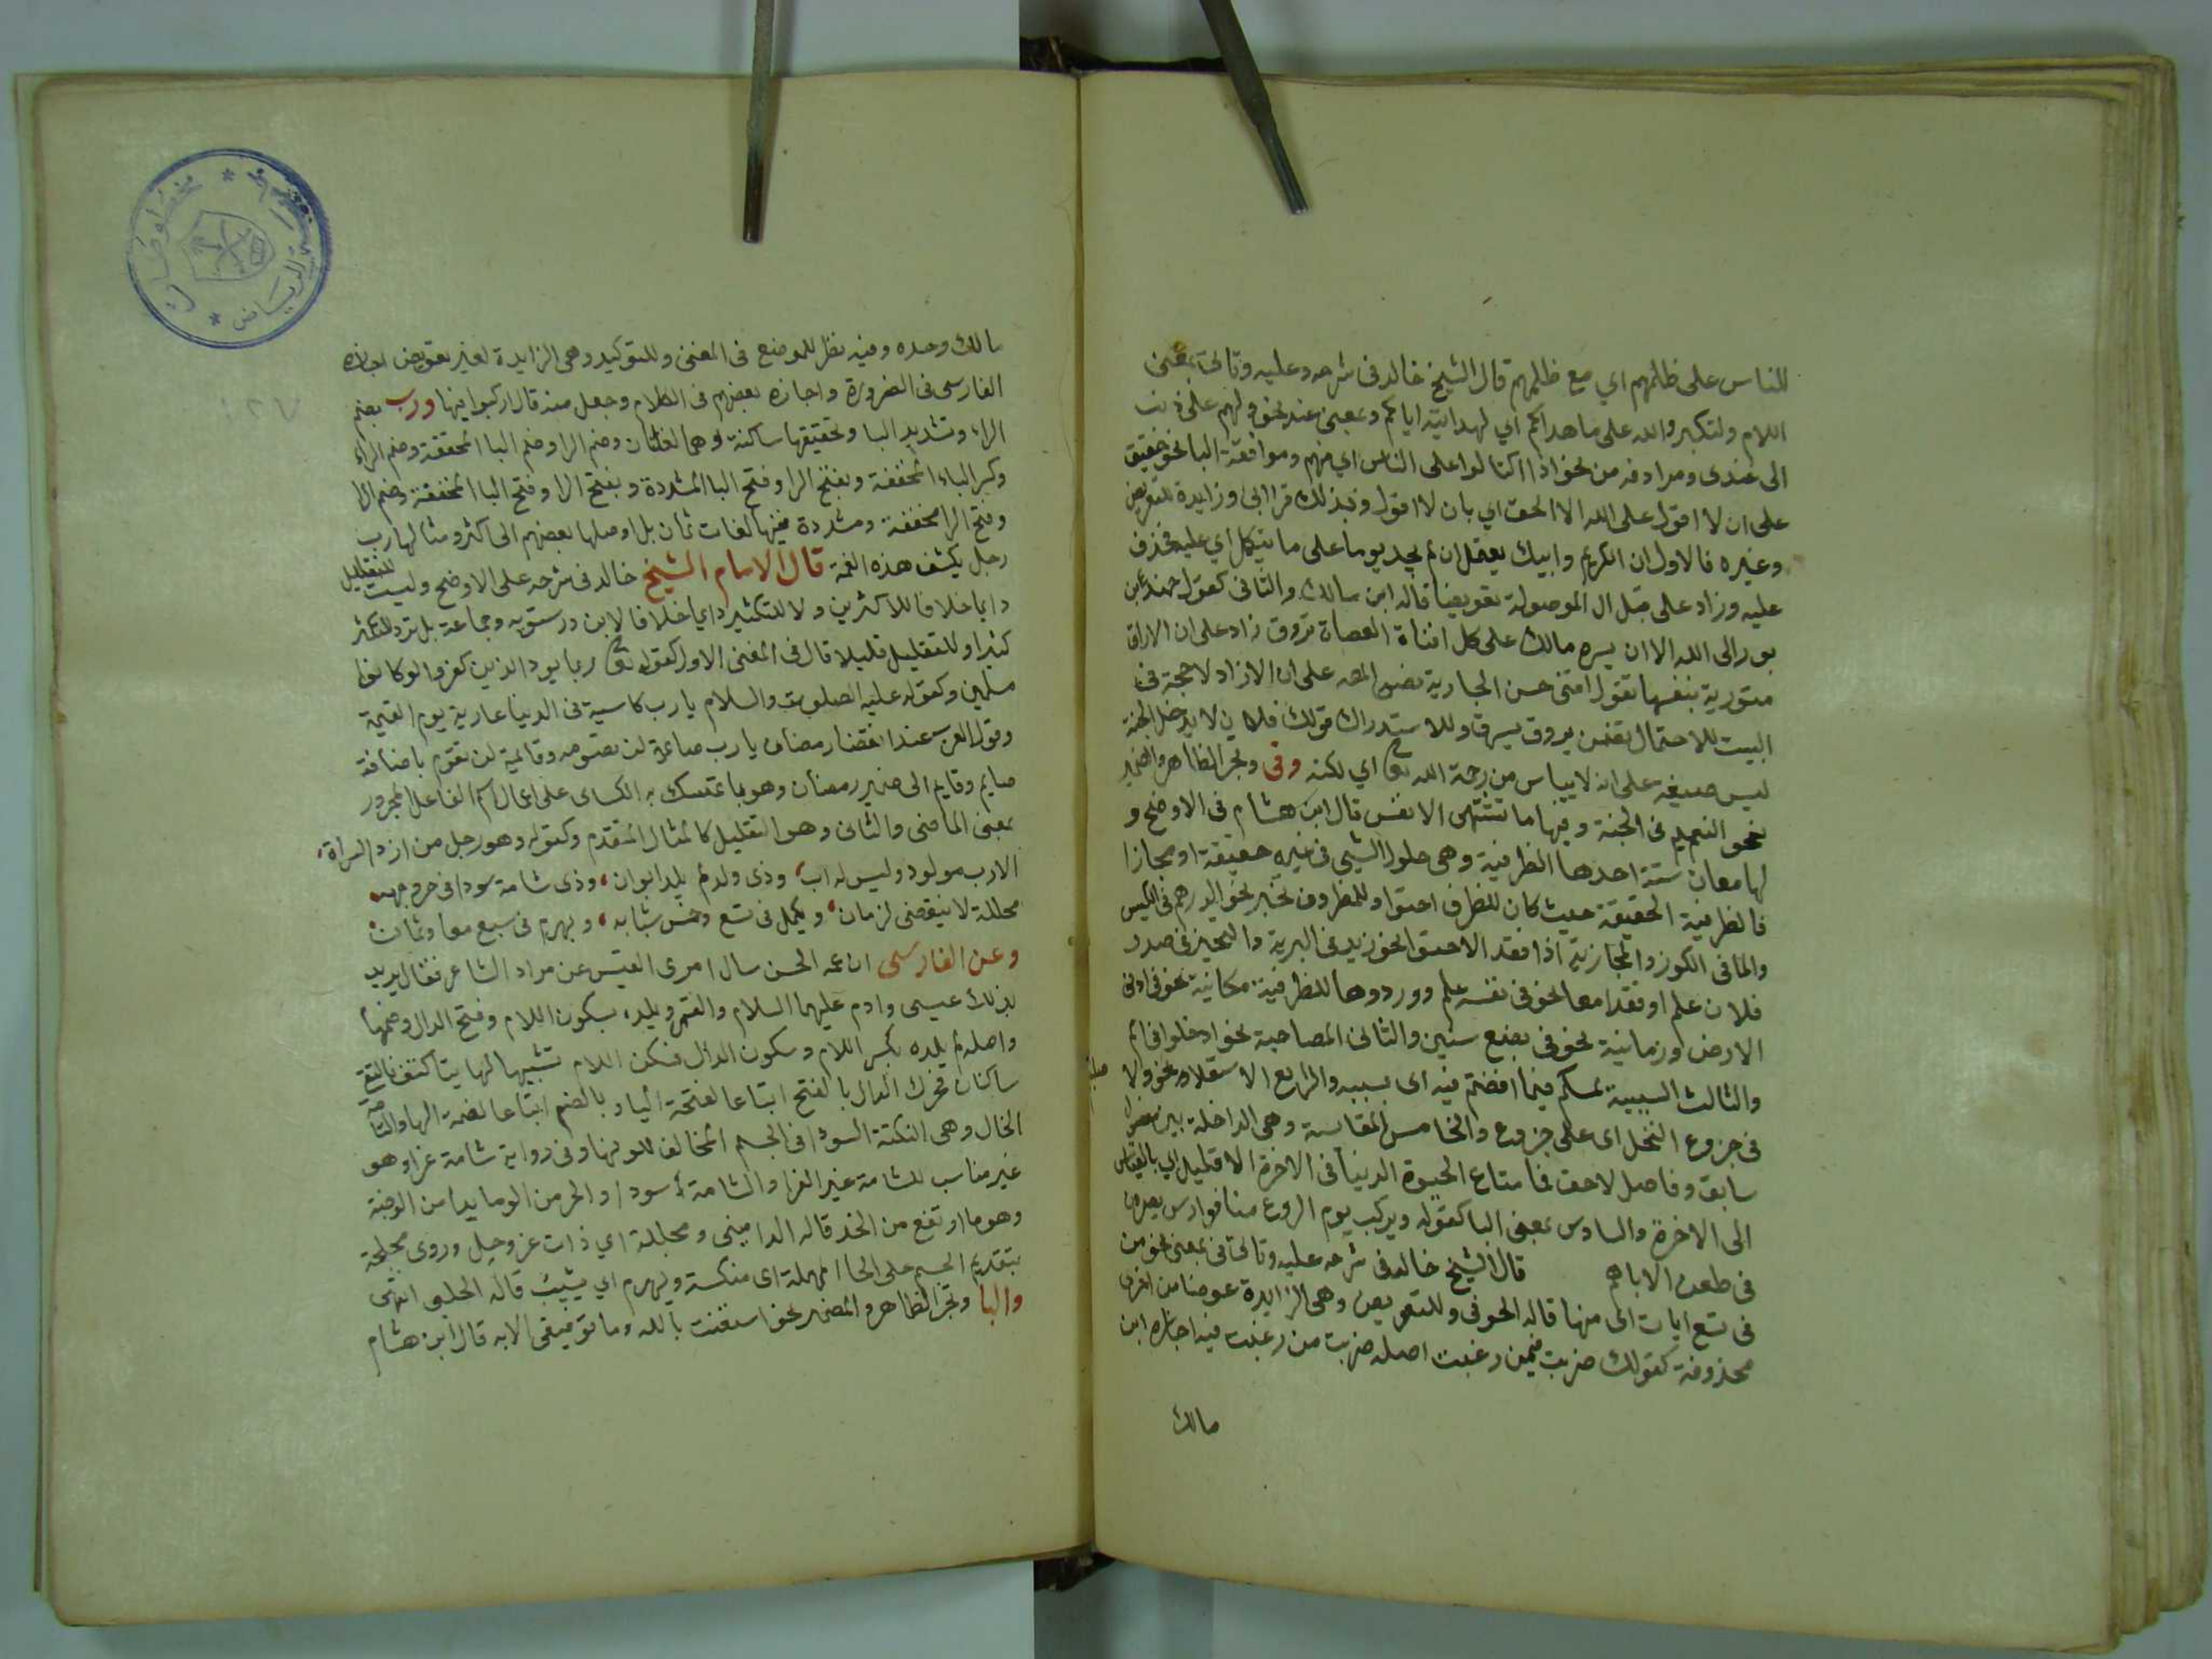 للناس على ظلمهم اي مع ظلمهم قال الشيخ خالد في شرحه وعليه وتاتى بمعنى
اللام ولتكبروا الله على ما هداكم اي لهدايته اياكم وبمعنى عند نحو ولهم على ذنب
اي عندى ومرادفه من نحو اذا اكتالوا على الناس اي منهم وموافقة البا نحو حقيق
على ان لا اقول على الله الا الحق اي بان لا اقول وبذلك قرا ابى وزايدة للتعويض
وغيره فالاول ان الكريم وابيك يعتمل ان لم يجد يوما على من يتكل اي عليه فحذف
عليه وزاد على قبل ال الموصولة تعويضا قاله ابن مالك والثانى كقول حميد بن
ثور ابى الله الا ان سرحة مالك على كل افناة العضاة تروق زاد على ان الاراق
متورية بنفسها تقول
البيت للاحتمال تضمن يروق يسرق وللاستدراك قولك فلان لا يدخل الجنة
على انه لا يياس من رحمة الله تعالى اي لكنه وفى وتجر الظاهر والضمير
نحو النعيم فى الجنة وفيها ما تشتهى الانفس قال ابن هشام فى الاوضح و
لها معان ستة احدها الظرفية وهى حلول الشيى فى غيره حقيقة او مجازا
فالظرفية الحقيقة حيث كان للظرف احتوا وللمظروف تحيز نحو الدرهم فى الكيس
والما فى الكوز والمجازية اذا فقد الاحتوا نحو زيد فى البرية والتحيز فى صدر
فلان علم او فقدا معا نحو فى نفسه علم ووردوها للظرفية مكانية نحو فى ادنى
الارض وزمانية نحو فى بضع سنين والثانى المصاحبة نحو ادخلوا فى امم
والثالث السببية لمسكم فيما افضتم فيه اى بسببه والرابع الاستعلا نحو ولاصلبنكم
فى جزوع النخل اى على جزوع والخامس المقايسة وهى الداخلة بين مفضول
سابق وفاضل لاحق فما متاع الحيوة الدنيا فى الاخرة الا قليل اي بالقياس
الى الاخرة والسادس بمعنى البا كقوله ويركب يوم الروع منا فوارس بصيرون
فى طعن الاباهر قال الشيخ خالد فى شرحه عليه وتاتى فى بمعنى نحو من
فى تسع ايات اى منها قاله الحوفى وللتعويض وهى الزايدة عوضا من اخرى
محذوفة كقولك ضربت فيمن رغبت اصله ضربت من رغبت فيه اجازه ابن
مالك
مالك وحده وفيه نظر للموضع فى المغنى وللتوكيد وهى الزايدة لغير تعويض اجازه
الفارسى فى الضرورة واجازه بعضهم فى الكلام وجعل منه قال اركبوا فيها ورب بضم
الراء وتشديد البا وتحقيقها ساكنة وهما لغتان وضم الرا وضم البا المخففة وضم الراء
وكسر الباء المخففة وبفتح الرا وفتح البا المشددة وبفتح الرا وفتح البا المخففة وضم الرا
وفتح الرا مخففة ومشددة فيها لغات ثمان بل اوصلها بعضهم الى اكثر ومثالها رب
رجل يكشف هذه الغمة قال الامام الشيخ خالد فى شرحه على الاوضح وليست للتقليل
دايما خلافا للاكثرين ولا للتكثير دايما خلافا لابن درستويه وجماعة بل ترد للتكثير
كثيرا وللتقليل قليلا قال فى المغنى الاول كقوله تعالى ربما يود الذين كفروا لو كانوا
مسلمين وكقوله عليه الصلوت والسلام يارب كاسية فى الدنيا عارية يوم القيمة
وقول العرب عند انقضا رمضان يارب صايمة لن تصومه وقايمة لن تقوم باضافة
صايم وقايم الى ضمير رمضان وهو مما تمسك به الكساى على اعمال اسم الفاعل المجرور
بمعنى الماضى والثانى وهو التقليل كالمثال المتقدم وكقوله وهو رجل من ازد السراة،
الا رب مولود وليس له اب، وذى ولد لم يلده ابوان، وذى شامة سودا فى حر وجهه،
مجللة لا ينقضى لزمان، ويكمل فى تسع وخمس شبابه، ويهرم فى سبع معا وثمان
وعن الفارسى ان عمه الحسن سال امرى القيس عن مراد الشاعر فقال يريد
بذلك عيسى وادم عليهما السلام والقمر ويلد، بسكون اللام وفتح الدال وضمها
واصله لم يلده بكسر اللام وسكون الدال فسكن اللام تشبيها لها بتا كتف فالتقى
ساكنان فحرك الدال بالفتح اتباعا لفتحة اليا وبالضم اتباعا لضمة الها والشامة
الخال وهى النكتة السودا فى الجسم المخالف للونها وفى رواية شامة غرا وهو
غير مناسب للشامة غير الغرا والشامة سودا والحر من الوجه ما بدا من الوجنة
وهو ما ارتفع من الخد قاله الدمامينى ومجللة اي ذات عز وجل وروى مجلحة
بتقديم الجيم على الحا المهملة اى منكسة ويهرم اي يشيب قاله الحلو انتهى
والبا وتجر الظاهر والمضمر نحو استعنت بالله وما توفيقى الا به قال ابن هشام
مخطوطات
الرياض